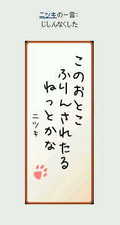 ニツキの一言:
じしんなくした
このおとこ
ふりんされたる
ねっとかな
ニツキ